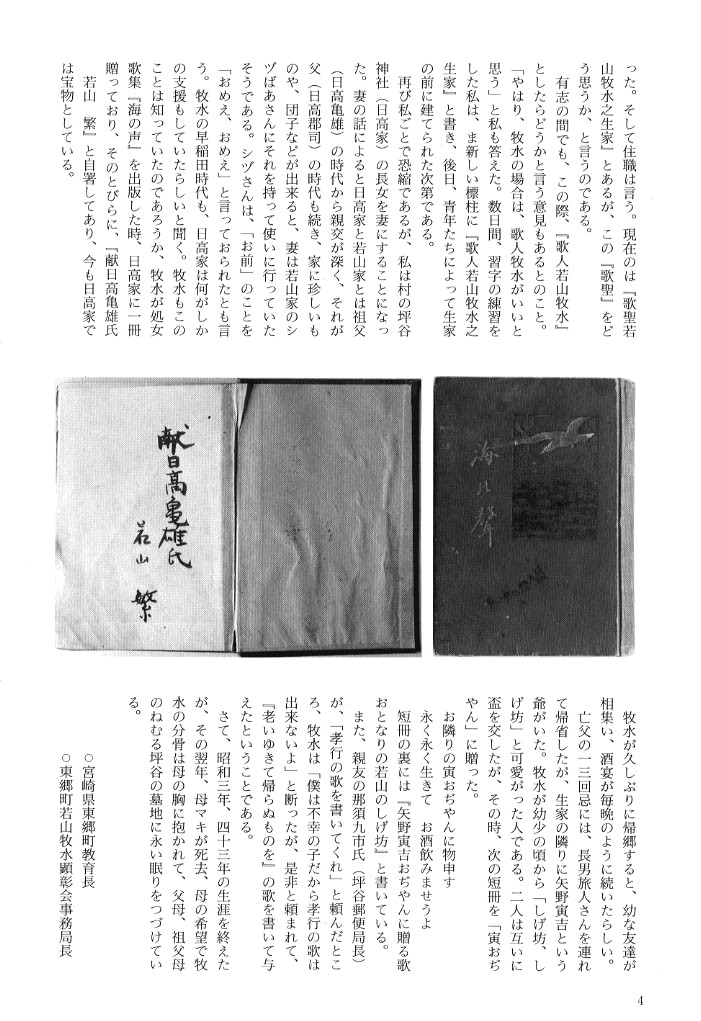 った。そして住職は言う。現在のは『歌聖若
山牧水之生家』とあるが、この『歌聖』をど
う思うか、と言うのである。
有志の間でも、この際、『歌人若山牧水』
としたらどうかと言う意見もあるとのこと。
「やはり、牧水の場合は、歌人牧水がいいと
思う」と私も答えた。数日間、習字の練習を
した私は、ま新しい標柱に『歌人若山牧水之
生家』と書き、後日、青年たちによって生家
の前に建てられた次第である。
再び私ごとで恐縮であるが、私は村の坪谷
神社（日高家）の長女を妻にすることになっ
た。妻の話によると日高家と若山家とは祖父
（日高亀雄）の時代から親交が深く、それが
父（日高郡司）の時代も続き、家に珍しいも
のや、団子などが出来ると、妻は若山家のシ
ヅばあさんにそれを持って使いに行っていた
そうである。シヅさんは、「お前」のことを
「おめえ、おめえ」と言っておられたとも言
う。牧水の早稲田時代も、日高家は何がしか
の支援もしていたらしいと聞く。牧水もこの
ことは知っていたのであろうか、牧水が処女
歌集『海の声』を出版した時、日高家に一冊
贈っており、そのとびらに、『献日高亀雄氏
若山　繁』と自署してあり、今も日高家で
は宝物としている。
海の聲
献日高亀雄氏
若山　繁
牧水が久しぶりに帰郷すると、幼な友達が
相集い、酒宴が毎晩のように続いたらしい。
亡父の一三回忌には、長男旅人さんを連れ
て帰省したが、生家の隣りに矢野寅吉という
爺がいた。牧水が幼少の頃から「しげ坊、し
げ坊」と可愛がった人である。二人は互いに
盃を交したが、その時、次の短冊を「寅おぢ
やん」に贈った。
お隣りの寅おぢやんに物申す
永く永く生きて　お酒飲みませうよ
短冊の裏には『矢野寅吉おぢやんに贈る歌
おとなりの若山のしげ坊』と書いている。
また、親友の那須九市氏（坪谷郵便局長）
が、「孝行の歌を書いてくれ」と頼んだとこ
ろ、牧水は「僕は不幸の子だから孝行の歌は
出来ないよ」と断ったが、是非と頼まれて、
『老いゆきて帰らぬものを』の歌を書いて与
えたということである。
さて、昭和三年、四十三年の生涯を終えた
が、その翌年、母マキが死去、母の希望で牧
水の分骨は母の胸に抱かれて、父母、祖父母
のねむる坪谷の墓地に永い眠りをつづけてい
る。
○宮崎県東郷町教育長
○東郷町若山牧水顕彰会事務局長
4